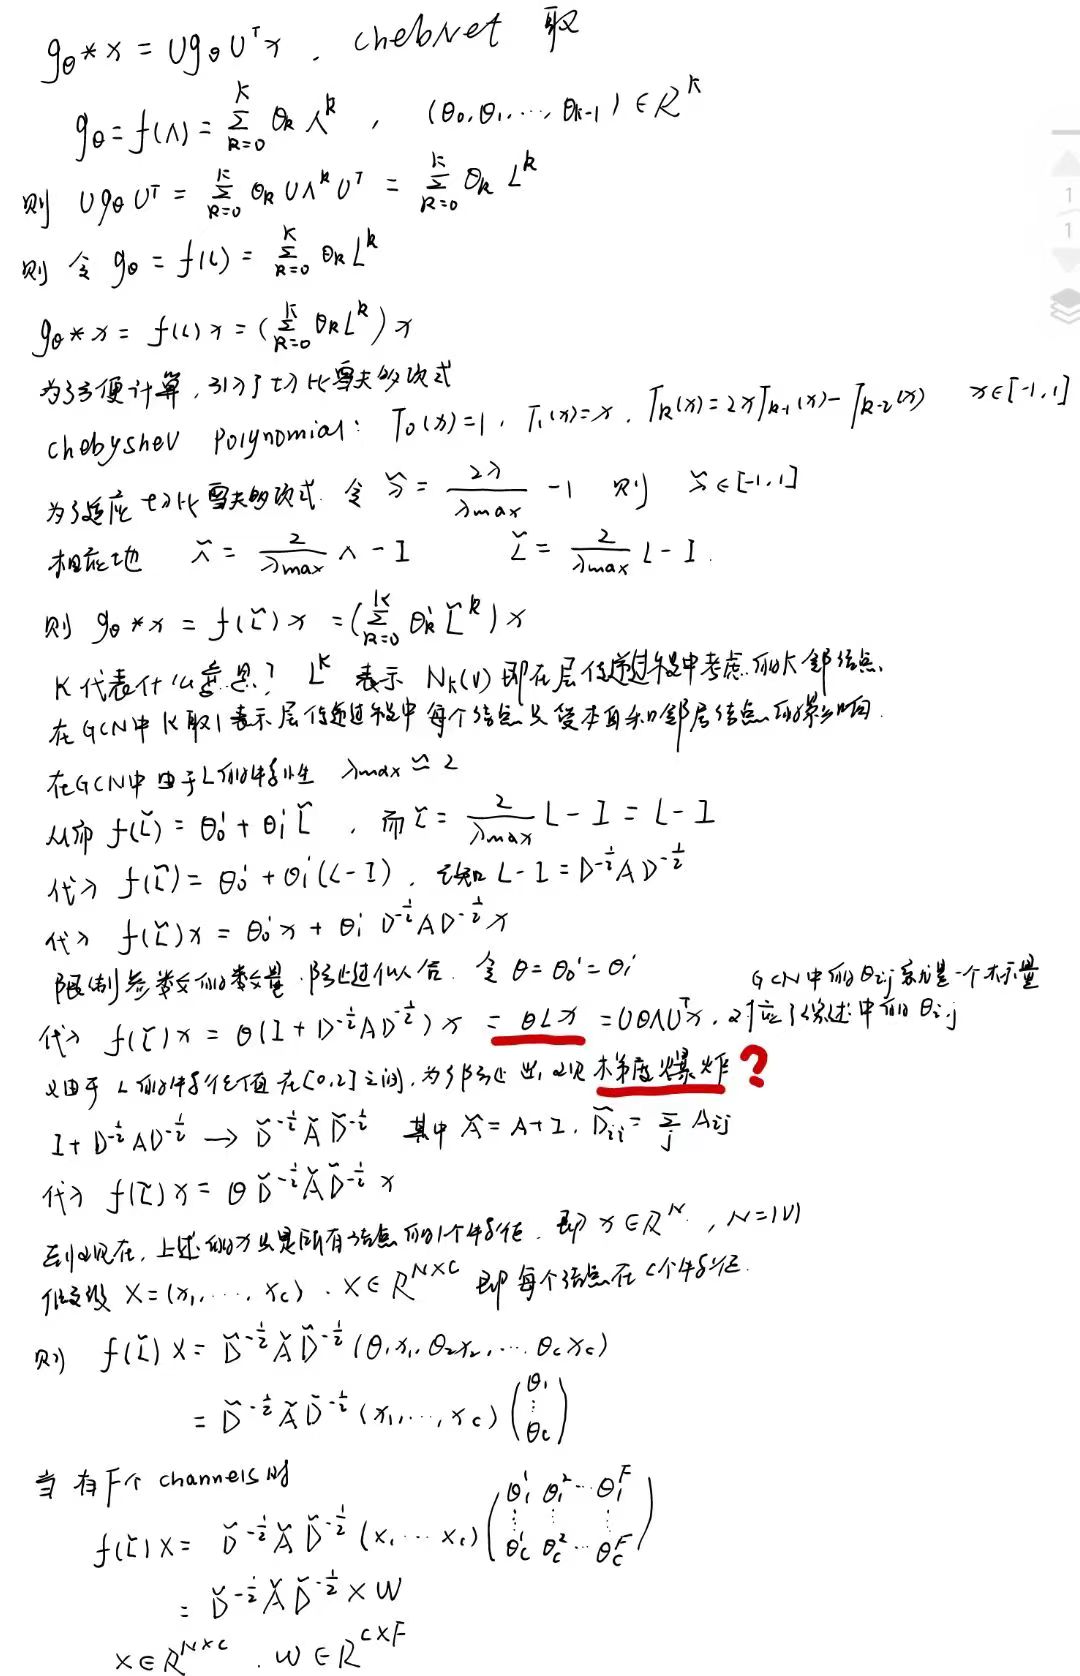 gθ * x = U gθ Uᵀ x . ChebNet 取
gθ = f(Λ) = Σ_{k=0}^{K} θk Λ^k , (θ0, θ1, ⋯, θk-1) ∈ R^K
则 U gθ Uᵀ = Σ_{k=0}^{K} θk U Λ^k Uᵀ = Σ_{k=0}^{K} θk L^k
则 令 gθ = f(L) = Σ_{k=0}^{K} θk L^k
gθ * x = f(L) x = (Σ_{k=0}^{K} θk L^k) x
为了方便计算,引入了切比雪夫多项式
Chebyshev Polynomial: T0(x)=1, T1(x)=x, Tk(x)=2xTk-1(x)-Tk-2(x) x∈[-1,1]
为了适应切比雪夫多项式. 令 λ̃ = 2λ/λmax - 1 则 λ̃∈[-1,1]
相应地 Λ̃ = 2/λmax Λ - I L̃ = 2/λmax L - I.
则 gθ * x = f(L̃) x = (Σ_{k=0}^{K} θk' L̃^k) x
K代表什么意思? L^K 表示 NK(V) 即在层传递过程中考虑的K邻结点.
在GCN中 K取1表示层传递过程中每个结点只受本身和邻居结点的影响.
在GCN中 由于L的特性 λmax ≃ 2
从而 f(L̃) = θ0' + θ1' L̃ , 而 L̃ = 2/λmax L - I = L - I
代入 f(L̃) = θ0' + θ1'(L-I) , 已知 L-I = D^{-1/2} A D^{-1/2}
代入 f(L̃)x = θ0' x + θ1' D^{-1/2} A D^{-1/2} x
限制参数的数量,防止过拟合. 令 θ = θ0' = θ1'
GCN中的θij就是一个标量
代入 f(L̃) x = θ(I + D^{-1/2} A D^{-1/2}) x = θLx = UθΛUᵀx, 对应了综述中的 θi,j
又由于 L的特征值在[0,2]之间, 为了防止出现梯度爆炸 ?
I + D^{-1/2} A D^{-1/2} → D̃^{-1/2} Ã D̃^{-1/2} 其中 Ã = A+I, D̃ii = Σ_j Aij
代入 f(L̃) x = θ D̃^{-1/2} Ã D̃^{-1/2} x
到现在, 上述的x只是所有结点的1个特征, 即 x∈R^N , N=|V|
假设 X=(x1, ⋯, xc) . X∈R^{N×C} 即每个结点在C个特征.
则 f(L̃) X = D̃^{-1/2} Ã D̃^{-1/2} (θ1x1, θ2x2, ⋯ θcxc)
= D̃^{-1/2} Ã D̃^{-1/2} (x1, ⋯, xc) (θ1 ⋮ θc)
当有F个channels时
f(L̃) X = D̃^{-1/2} Ã D̃^{-1/2} (x1 ⋯ xc) (θ1^1 θ1^2 ⋯ θ1^F ⋮ ⋮ ⋮ θc^1 θc^2 ⋯ θc^F)
= D̃^{-1/2} Ã D̃^{-1/2} X W
X∈R^{N×C} . W∈R^{C×F}
1
1